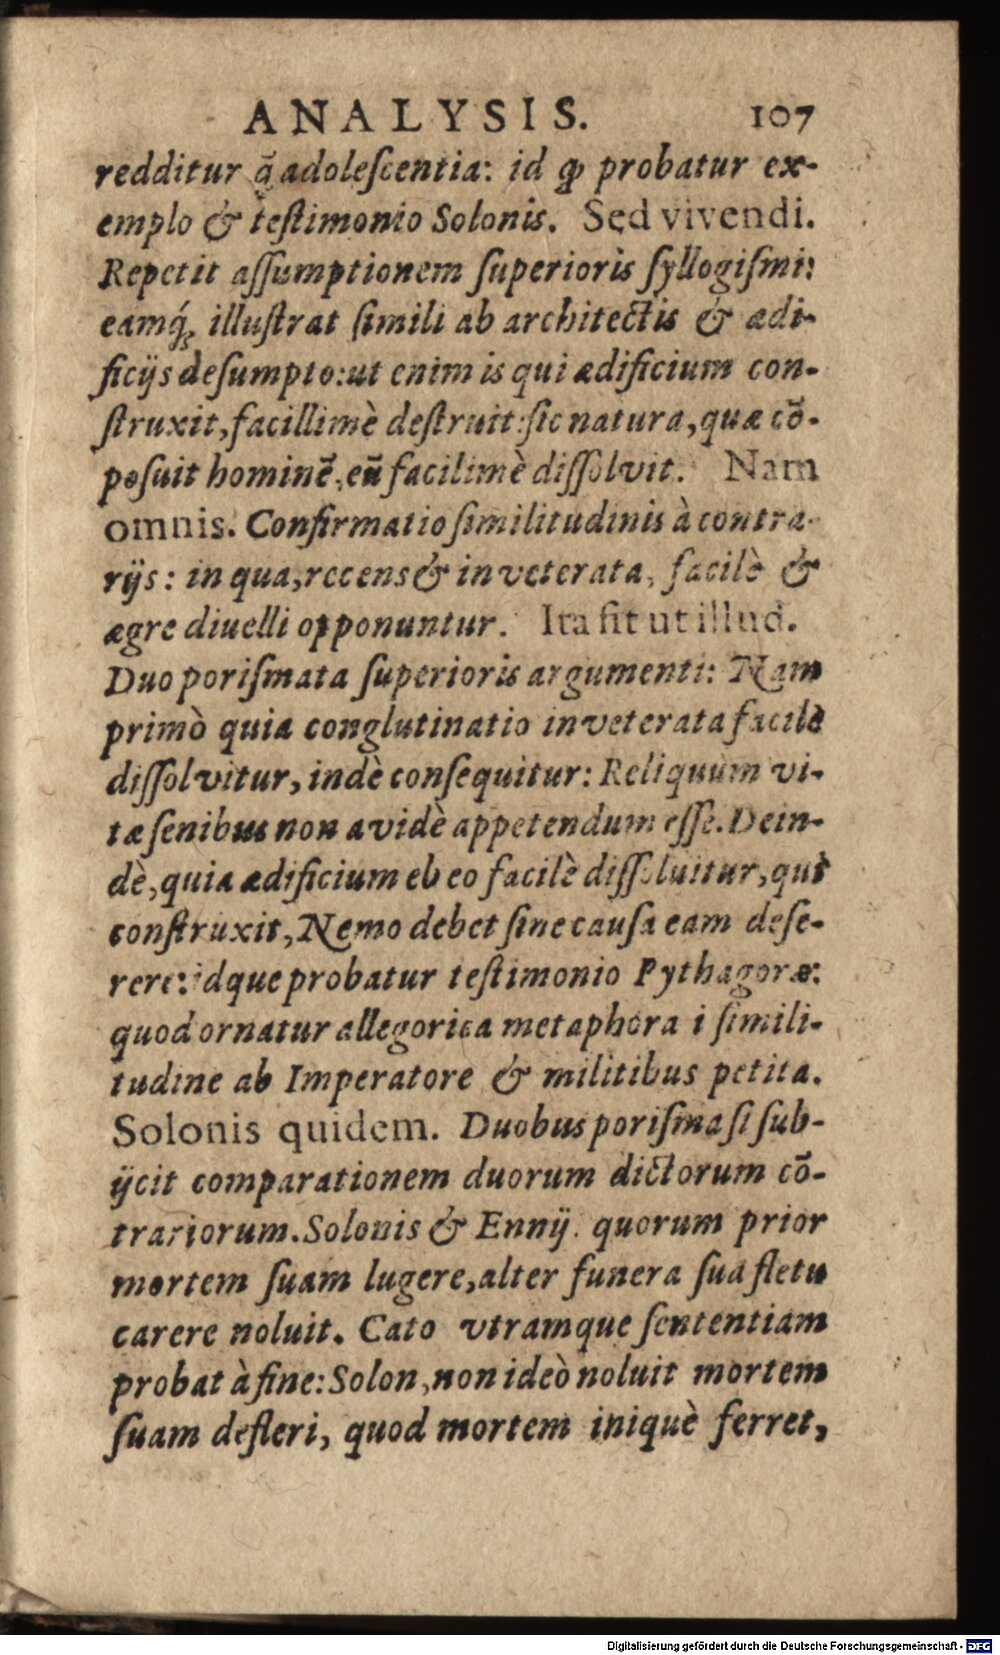 ANALYSIS. 107
redditur q̃ adoleſcentia: id ꝙ probatur ex-
emplo & teſtimonio Solonis. Sed vivendi.
Repetit aſſumptionem ſuperioris ſyllogiſmi:
eamq́; illuſtrat ſimili ab architectis & ædi-
ficijs deſumpto: ut enim is qui ædificium con-
ſtruxit, facillimè deſtruit: ſic natura, quæ cō-
poſuit hominē, eū facilimè diſſolvit. Nam
omnis. Confirmatio ſimilitudinis à contra-
rijs: in qua, recens & inveterata, facilè &
ægre diuelli opponuntur. Ita fit ut illud.
Duo poriſmata ſuperioris argumenti: Nam
primò quia conglutinatio inveterata facilè
diſſolvitur, indè conſequitur: Reliquùm vi-
tæ ſenibus non avidè appetendum eſſe. Dein-
dè, quia ædificium eb eo facilè diſſoluitur, qui
conſtruxit, Nemo debet ſine cauſa eam deſe-
rere: idque probatur teſtimonio Pythagoræ:
quod ornatur allegorica metaphora i ſimili-
tudine ab Imperatore & militibus petita.
Solonis quidem. Duobus poriſmaſi ſub-
ijcit comparationem duorum dictorum cō-
trariorum. Solonis & Ennij. quorum prior
mortem ſuam lugere, alter funera ſua fletu
carere noluit. Cato vtramque ſententiam
probat à fine: Solon, non ideò noluit mortem
ſuam defleri, quod mortem iniquè ferret,
Digitalisierung gefördert durch die Deutsche Forschungsgemeinschaft - DFG